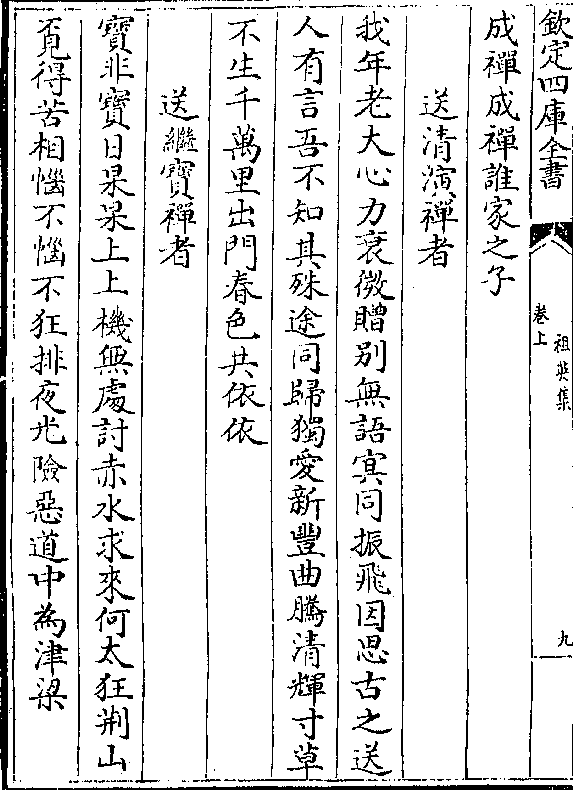 欽定四庫全書
祖英集
卷上
九
成禪成禪誰家之子
送清演禪者
我年老大心力衰微贈別無語寘同振飛因思古之送
人有言吾不知其殊途同歸獨愛新豐曲騰清輝寸草
不生千萬里出門春色共依依
送繼寶禪者
寶非寶日杲杲上上機無處討赤水求來何太狂荆山
覓得苦相惱不惱不狂排夜光險惡道中為津梁